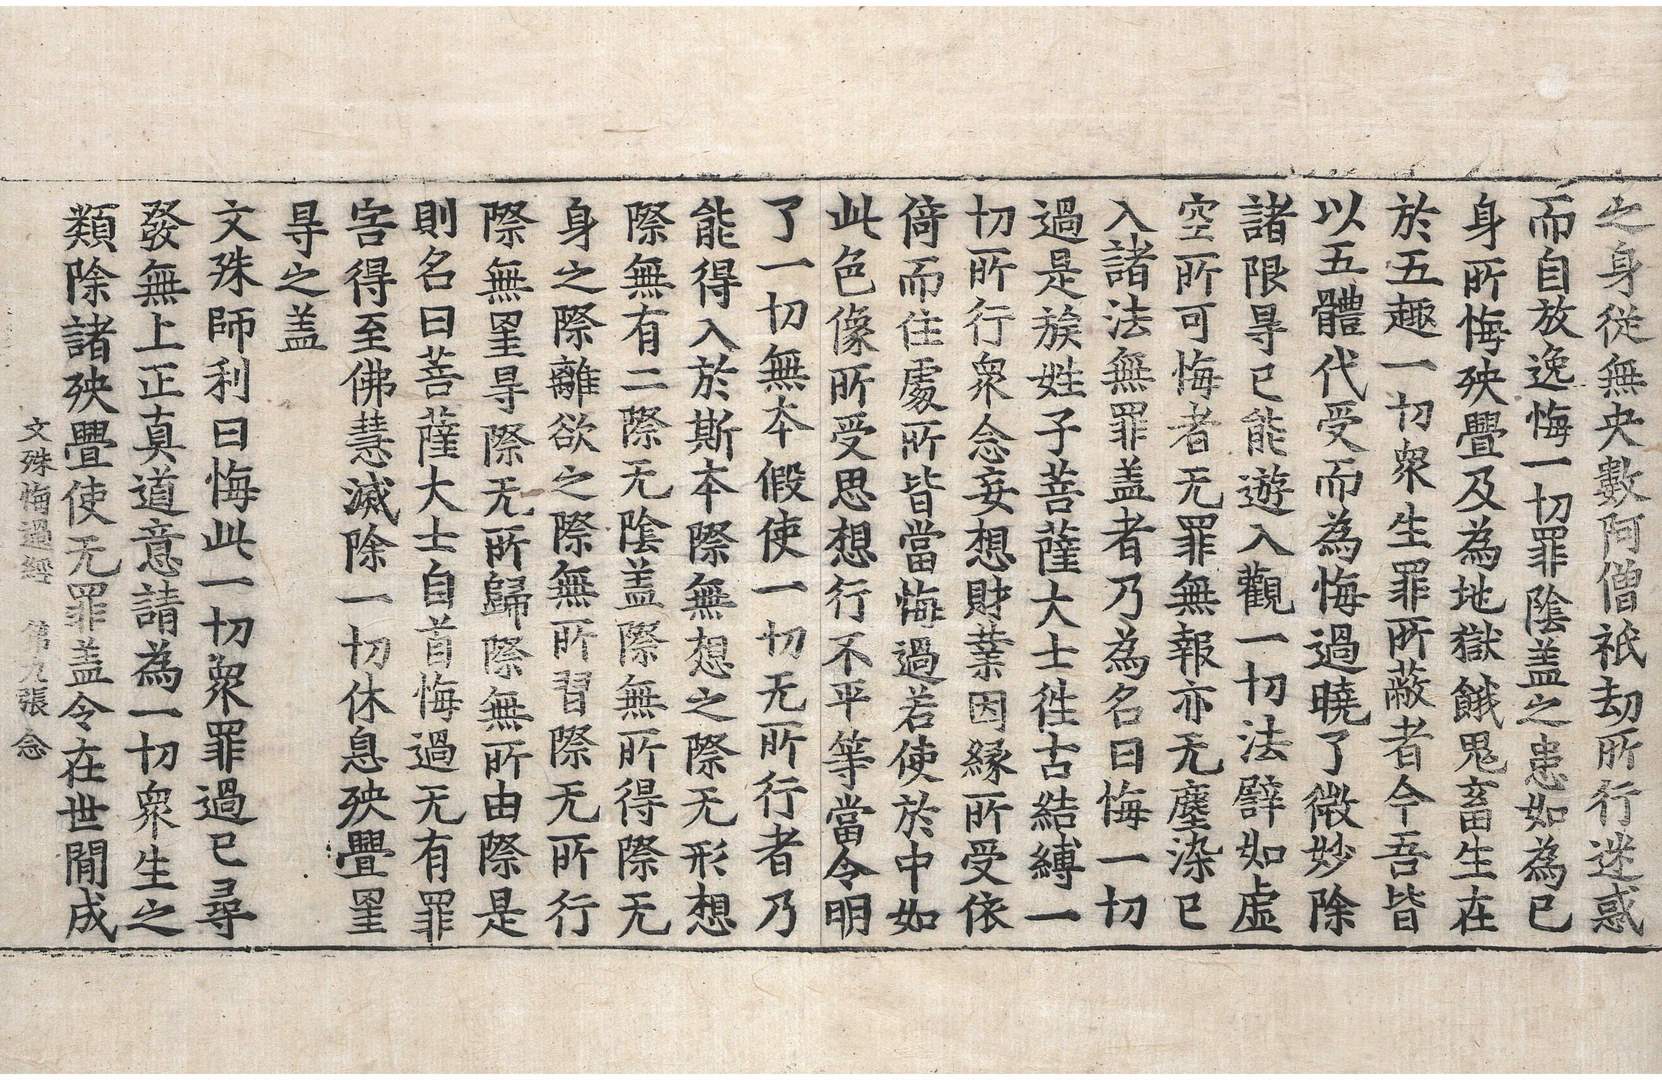 之身從無央數阿僧祇劫所行迷惑
而自放逸悔一切罪陰盖之患如為己
身所悔殃舋及為地獄餓鬼畜生在
於五趣一切衆生罪所蔽者今吾皆
以五體代受而為悔過曉了微妙除
諸限㝵已能遊入觀一切法譬如虛
空所可悔者无罪無報亦无塵染已
入諸法無罪盖者乃為名曰悔一切
過是族姓子菩薩大士徃古結縛一
切所行衆念妄想財業因緣所受依
倚而住處所皆當悔過若使於中如
此色像所受思想行不平等當令明
了一切無本假使一切无所行者乃
能得入於斯本際無想之際无形想
際無有二際无陰盖際無所得際无
身之際離欲之際無所習際无所行
際無罣㝵際无所歸際無所由際是
則名曰菩薩大士自首悔過无有罪
害得至佛慧滅除一切休息殃舋罣
㝵之盖
文殊師利曰悔此一切衆罪過已尋
發無上正真道意請為一切衆生之
類除諸殃舋使无罪盖令在世閒成
文殊悔過經 第九張 念